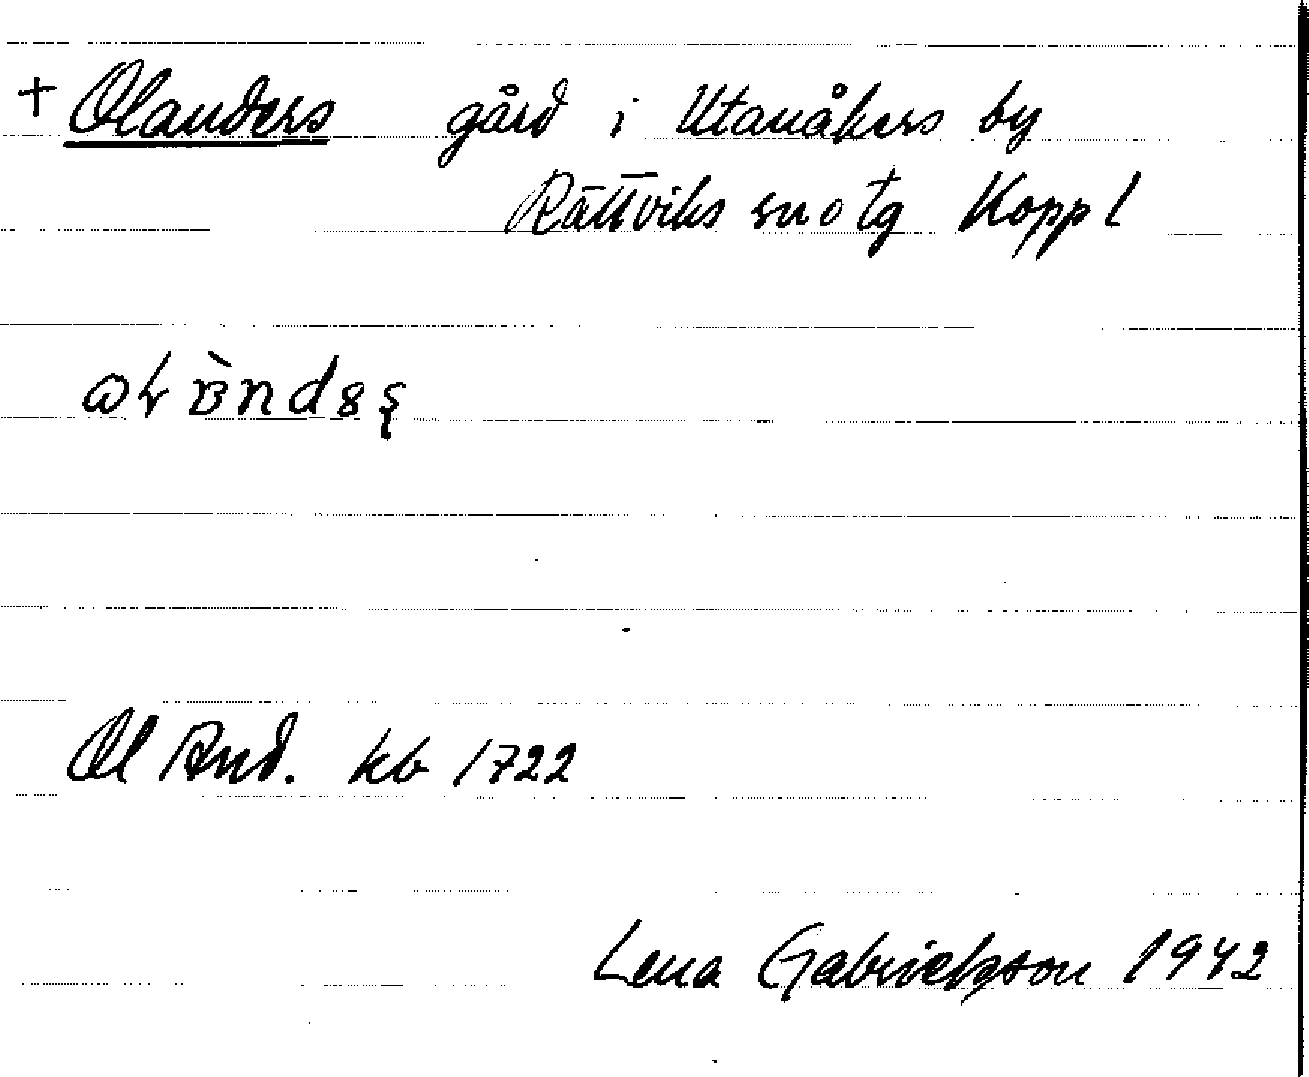 + Olanders gård i Utanåkers by
Rättviks sn o tg Koppl
Ol And. kb 1722
Lena Gabrielsson 1942